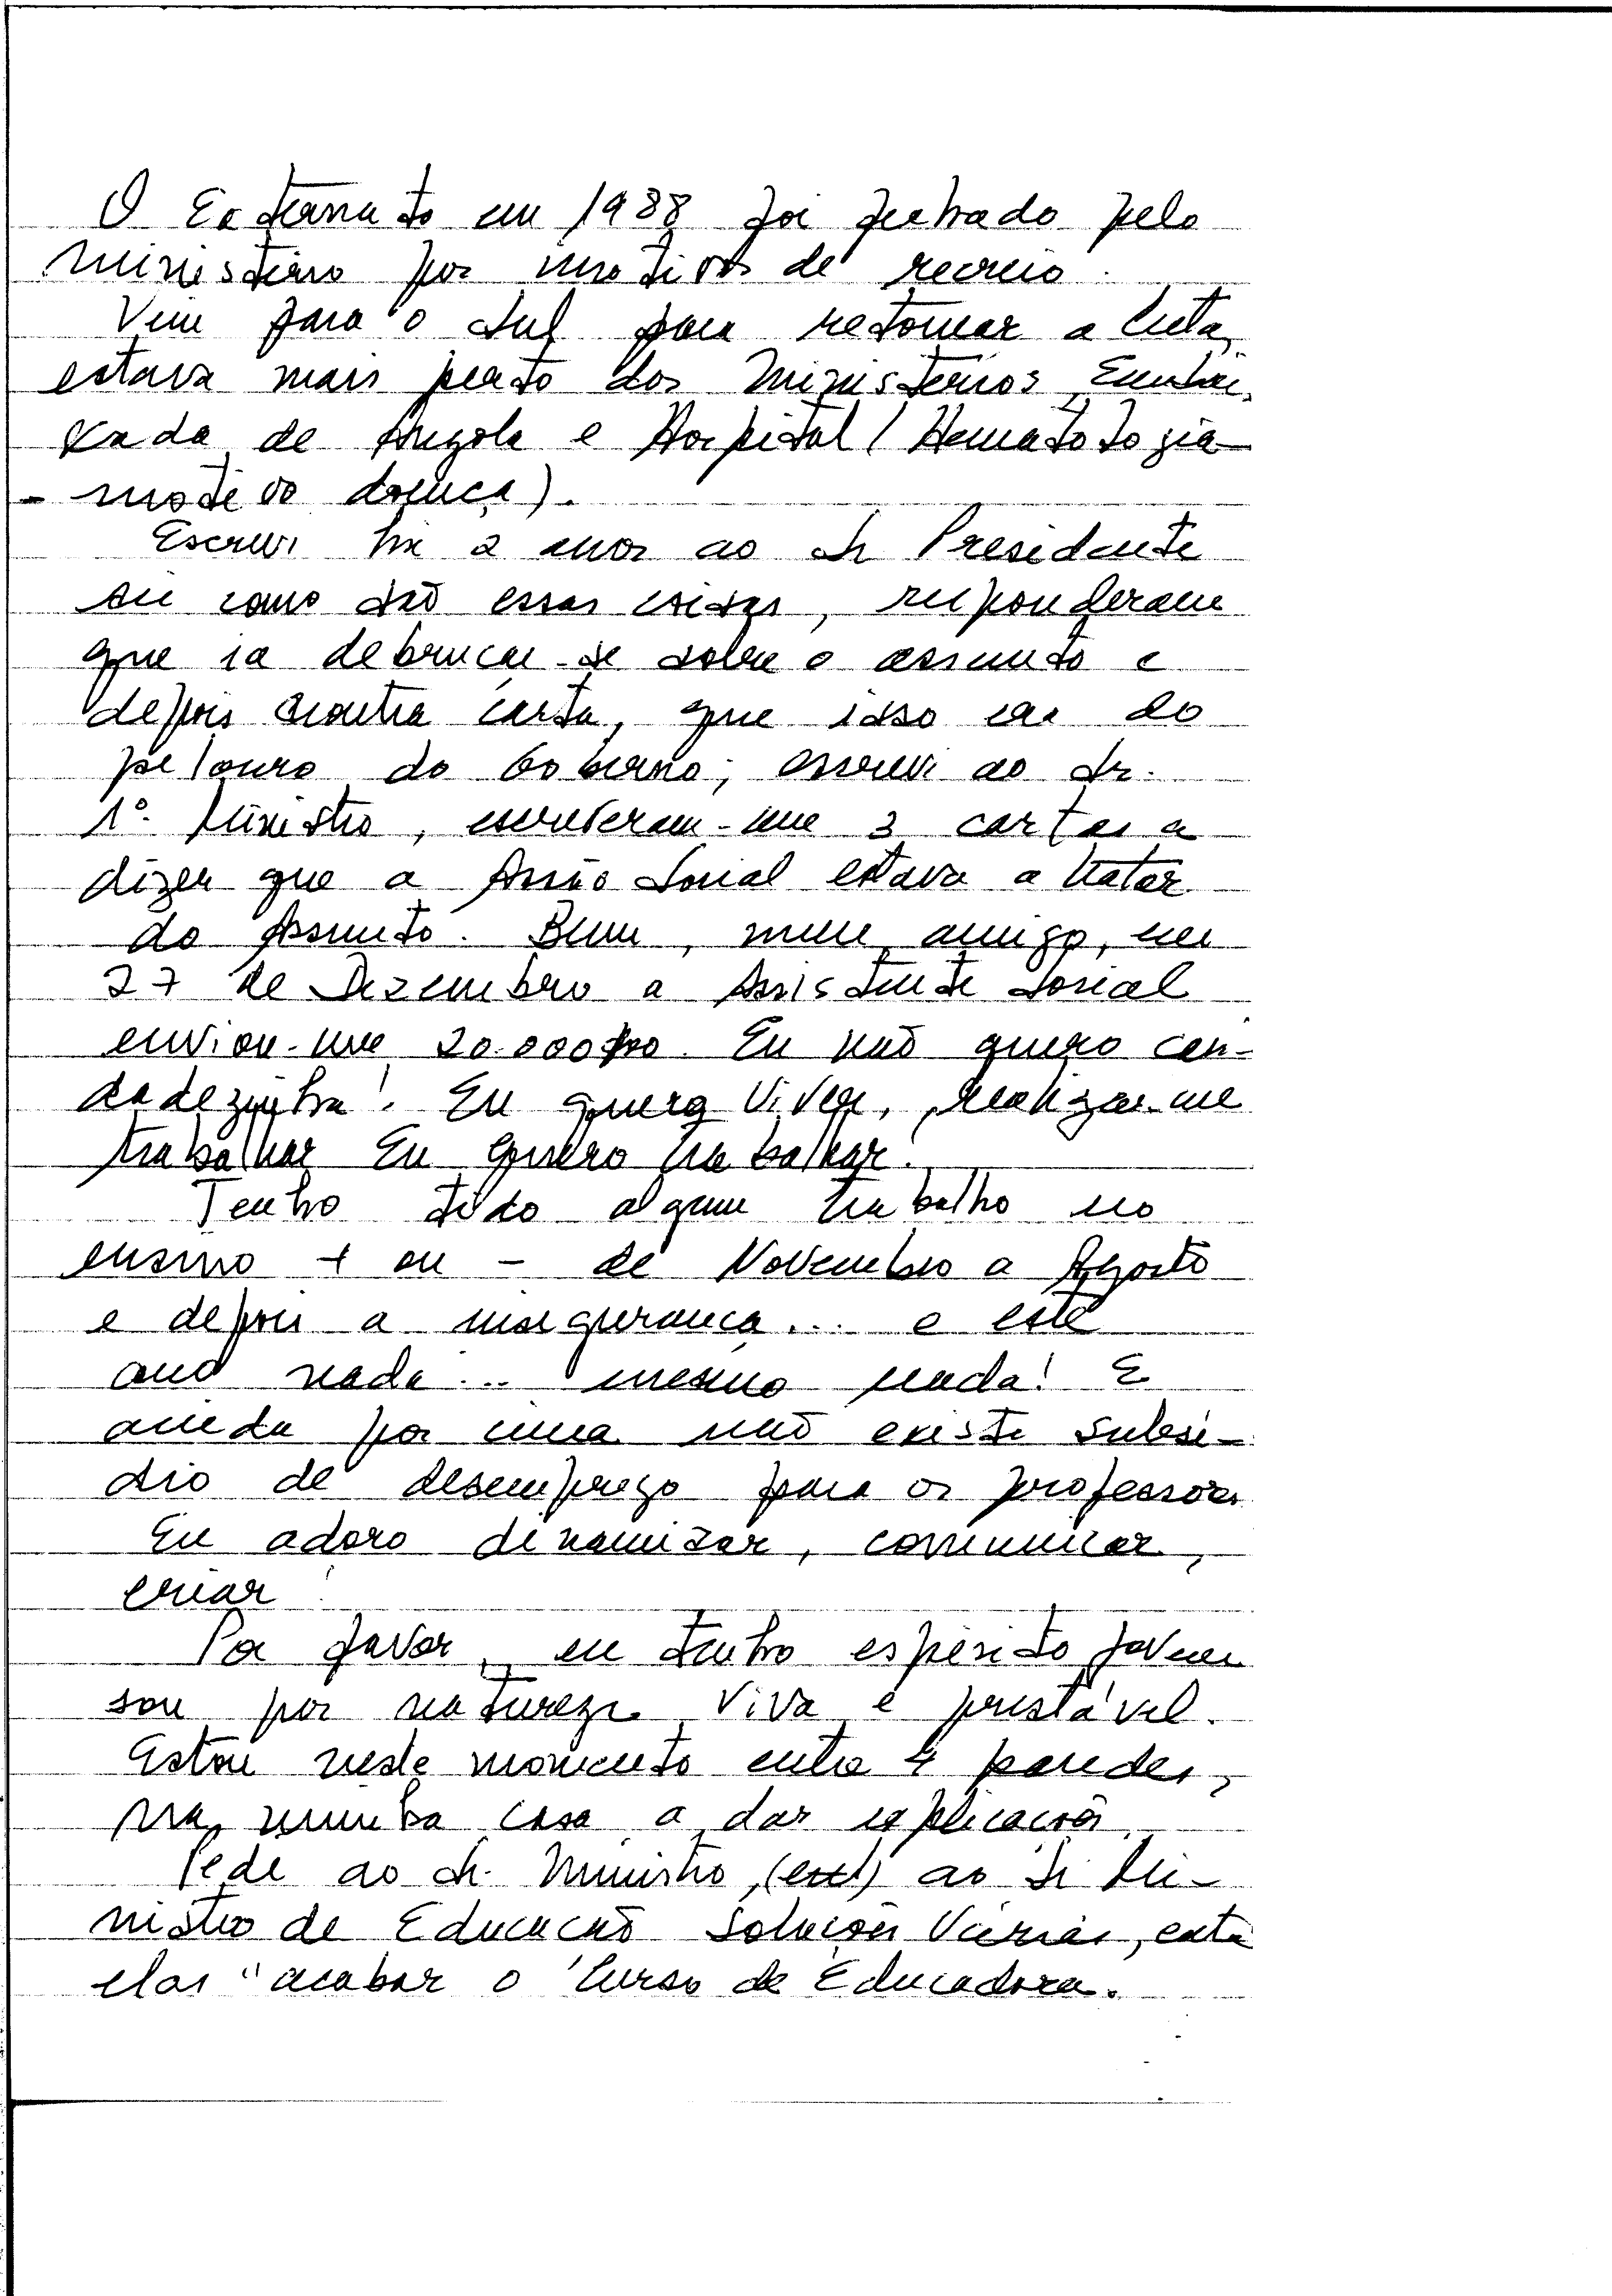 O Externato em 1988 foi fechado pelo
ministério por motivos de recreio.
Vim para o Sul para retomar a luta,
estava mais perto dos Ministérios, Embai-
xada de Angola e Hospital (Hematologia-
- motivo doença).
Escrevi há 2 anos ao Sr Presidente
sei como são essas coisas, responderam
que ia debruçar-se sobre o assunto e
depois outra carta, que isso era do
pelouro do Governo; escrevi ao Sr.
1º Ministro, escreveram-me 3 cartas a
dizer que a Acção Social estava a tratar
do Assunto. Bem, meu amigo, em
27 de Dezembro a Assistente Social
enviou-me 20.000$00. Eu não quero cari-
dadezinha! Eu quero viver, realizar-me
trabalhar Eu quero trabalhar!
Tenho tido algum trabalho no
ensino + ou - de Novembro a Agosto
e depois a insegurança... e este
ano nada... mesmo nada! E
ainda por cima não existe subsí-
dio de desemprego para os professores
Eu adoro dinamizar, comunicar,
criar!
Por favor, eu tenho espírito jovem
sou por natureza viva e prestável.
Estou neste momento entre 4 paredes,
na minha casa a dar explicações.
Pede ao Sr. Ministro, ao Sr Mi-
nistro de Educação soluções várias, entre
elas "acabar o Curso de Educadora.